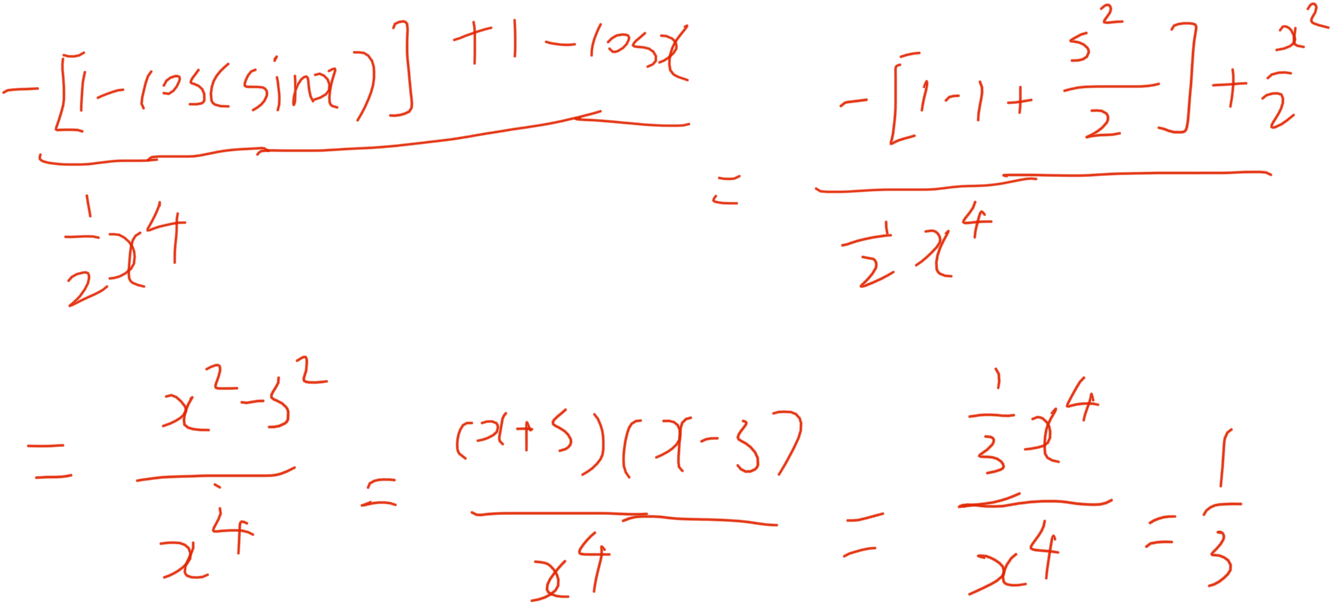 \frac{-[1-\cos(\sin x)]+1-\cos x}{\frac{1}{2}x^4} = \frac{-[1-1+\frac{s^2}{2}]+\frac{x^2}{2}}{\frac{1}{2}x^4}
= \frac{x^2-s^2}{x^4} = \frac{(x+s)(x-s)}{x^4} = \frac{\frac{1}{3}x^4}{x^4} = \frac{1}{3}